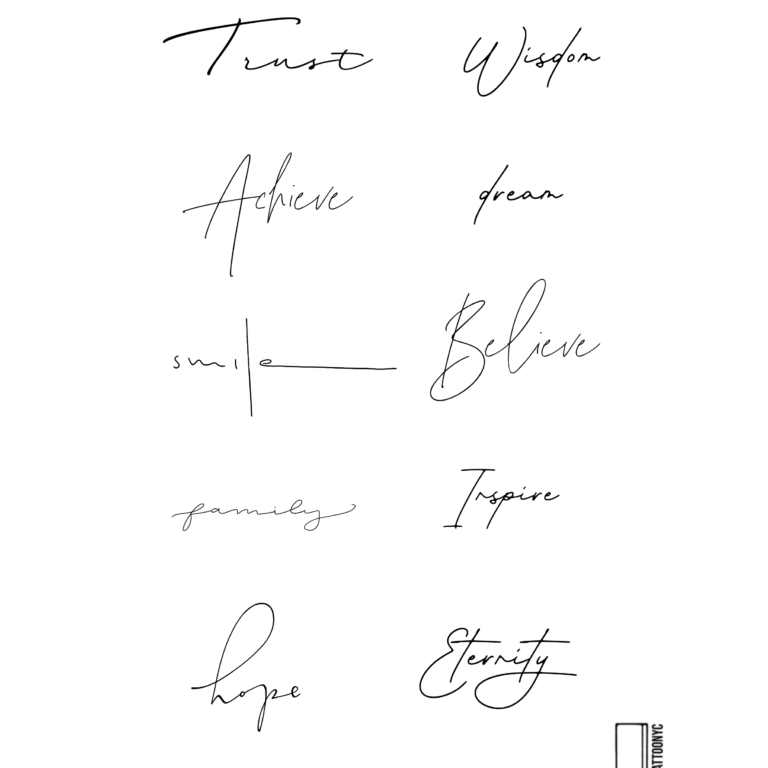 Trust Wisdom
Achieve dream
smile Believe
family Inspire
hope Eternity
ATTOONYC